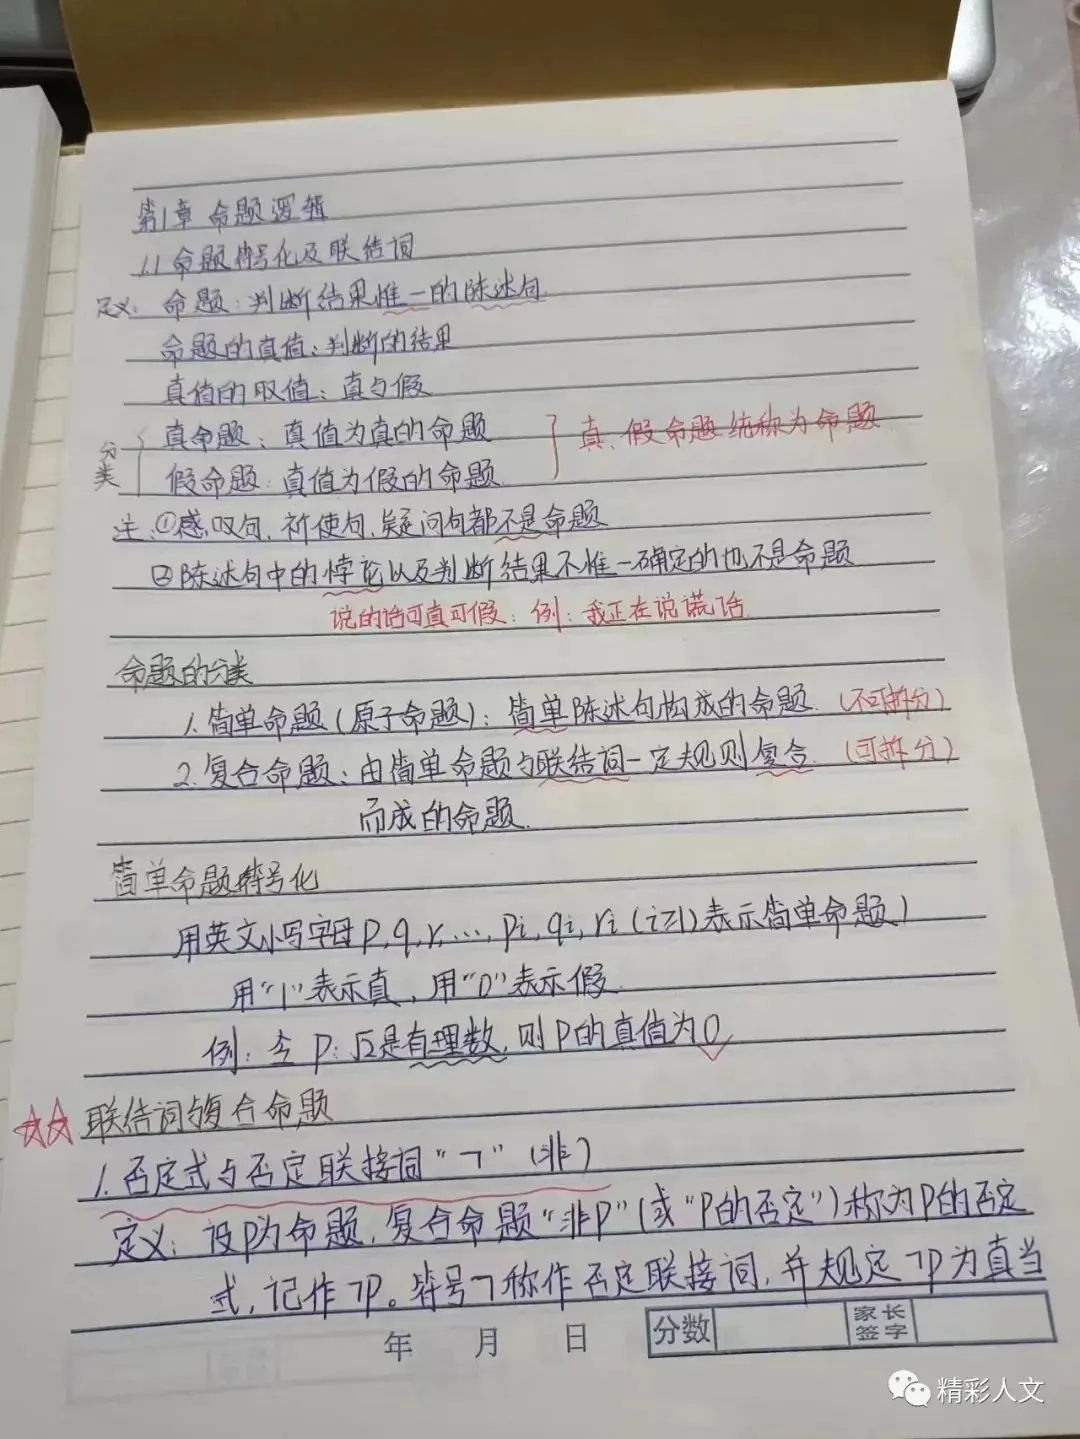 第1章 命题逻辑
1.1 命题符号化及联结词
定义: 命题:判断结果惟一的陈述句
命题的真值:判断的结果
真值的取值:真与假
分类
真命题:真值为真的命题
假命题:真值为假的命题
真、假命题统称为命题
注:①感叹句、祈使句、疑问句都不是命题
②陈述句中的悖论以及判断结果不惟一确定的也不是命题
说的话可真可假:例:我正在说谎话
命题的分类
1.简单命题(原子命题):简单陈述句构成的命题.(不可拆分)
2.复合命题:由简单命题与联结词一定规则复合.(可拆分)
而成的命题.
简单命题符号化
用英文小写字母p,q,r,…,pi,qi,ri(i≥1)表示简单命题)
用“1”表示真,用“0”表示假.
例:令 p:√2是有理数,则p的真值为0
☆☆ 联结词与复合命题
1.否定式与否定联接词“¬”(非)
定义:设p为命题,复合命题“非p”(或“p的否定”)称为p的否定
式,记作¬p。符号¬称作否定联接词,并规定¬p为真当
年 月 日 分数 家长签字
精彩人文